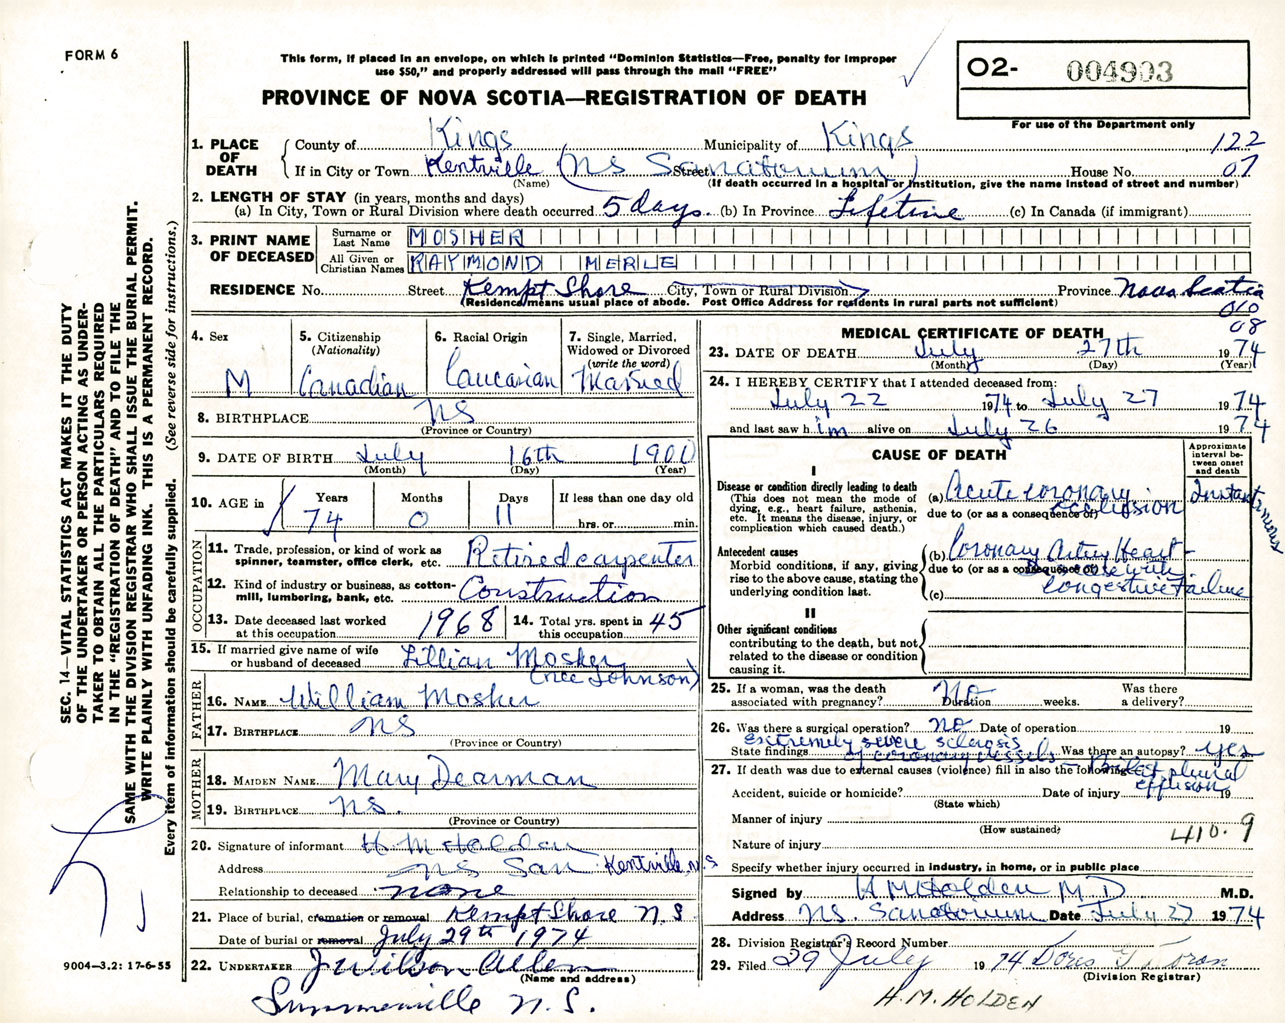 FORM 6
This form, if placed in an envelope, on which is printed "Dominion Statistics—Free, penalty for improper
use $50," and properly addressed will pass through the mail "FREE"
PROVINCE OF NOVA SCOTIA—REGISTRATION OF DEATH
O2- 004903
For use of the Department only
122
07
1. PLACE OF DEATH
County of Kings Municipality of Kings
If in City or Town Kentville (NS Sanatorium) Street House No.
(Name) (If death occurred in a hospital or institution, give the name instead of street and number)
2. LENGTH OF STAY (in years, months and days)
(a) In City, Town or Rural Division where death occurred 5 days. (b) In Province Lifetime (c) In Canada (if immigrant)
3. PRINT NAME OF DECEASED
Surname or Last Name MOSHER
All Given or Christian Names RAYMOND MERLE
RESIDENCE No. Street Kempt Shore City, Town or Rural Division Province Nova Scotia
(Residence means usual place of abode. Post Office Address for residents in rural parts not sufficient)
010
08
4. Sex M
5. Citizenship (Nationality) Canadian
6. Racial Origin Caucasian
7. Single, Married, Widowed or Divorced (write the word) Married
8. BIRTHPLACE NS
(Province or Country)
9. DATE OF BIRTH July 16th 1900
(Month) (Day) (Year)
10. AGE in Years Months Days If less than one day old
74 0 11 hrs. or min.
OCCUPATION
11. Trade, profession, or kind of work as spinner, teamster, office clerk, etc. Retired carpenter
12. Kind of industry or business, as cotton-mill, lumbering, bank, etc. Construction
13. Date deceased last worked at this occupation 1968
14. Total yrs. spent in this occupation 45
15. If married give name of wife or husband of deceased Lillian Mosher
(nee Johnson)
FATHER
16. NAME William Mosher
17. BIRTHPLACE NS
(Province or Country)
MOTHER
18. MAIDEN NAME Mary Dearman
19. BIRTHPLACE NS.
(Province or Country)
20. Signature of informant H M Holden
Address NS San Kentville, N.S
Relationship to deceased none
21. Place of burial, cremation or removal Kempt Shore N.S
Date of burial or removal July 29th 1974
22. UNDERTAKER J Wilson Allen
(Name and address)
Summerville N.S.
MEDICAL CERTIFICATE OF DEATH
23. DATE OF DEATH July 27th 1974
(Month) (Day) (Year)
24. I HEREBY CERTIFY that I attended deceased from:
July 22 1974 to July 27 1974
and last saw him alive on July 26 1974
CAUSE OF DEATH
Approximate interval between onset and death
I
Disease or condition directly leading to death
(This does not mean the mode of dying, e.g., heart failure, asthenia, etc. It means the disease, injury, or complication which caused death.)
(a) Acute coronary occlusion Instantaneous
due to (or as a consequence of)
Antecedent causes
Morbid conditions, if any, giving rise to the above cause, stating the underlying condition last.
(b) Coronary Artery Heart Disease with
due to (or as a consequence of)
(c) Congestive Failure
II
Other significant conditions
contributing to the death, but not related to the disease or condition causing it.
25. If a woman, was the death associated with pregnancy? No Duration weeks. Was there a delivery?
26. Was there a surgical operation? no Date of operation 19
State findings extremely severe sclerosis of coronary vessels Was there an autopsy? yes
27. If death was due to external causes (violence) fill in also the following: pleural effusion
Accident, suicide or homicide? Date of injury 19
(State which)
Manner of injury
(How sustained)
Nature of injury 410.9
Specify whether injury occurred in industry, in home, or in public place
Signed by H M Holden M D M.D.
Address NS. Sanatorium Date July 27 1974
28. Division Registrar's Record Number
29. Filed 29 July 1974 Doris
(Division Registrar)
H.M. HOLDEN
SEC. 14—VITAL STATISTICS ACT MAKES IT THE DUTY
OF THE UNDERTAKER OR PERSON ACTING AS UNDER-
TAKER TO OBTAIN ALL THE PARTICULARS REQUIRED
IN THE "REGISTRATION OF DEATH" AND TO FILE THE
SAME WITH THE DIVISION REGISTRAR WHO SHALL ISSUE THE BURIAL PERMIT.
WRITE PLAINLY WITH UNFADING INK. THIS IS A PERMANENT RECORD.
Every item of information should be carefully supplied. (See reverse side for instructions.)
9004—3.2: 17-6-55